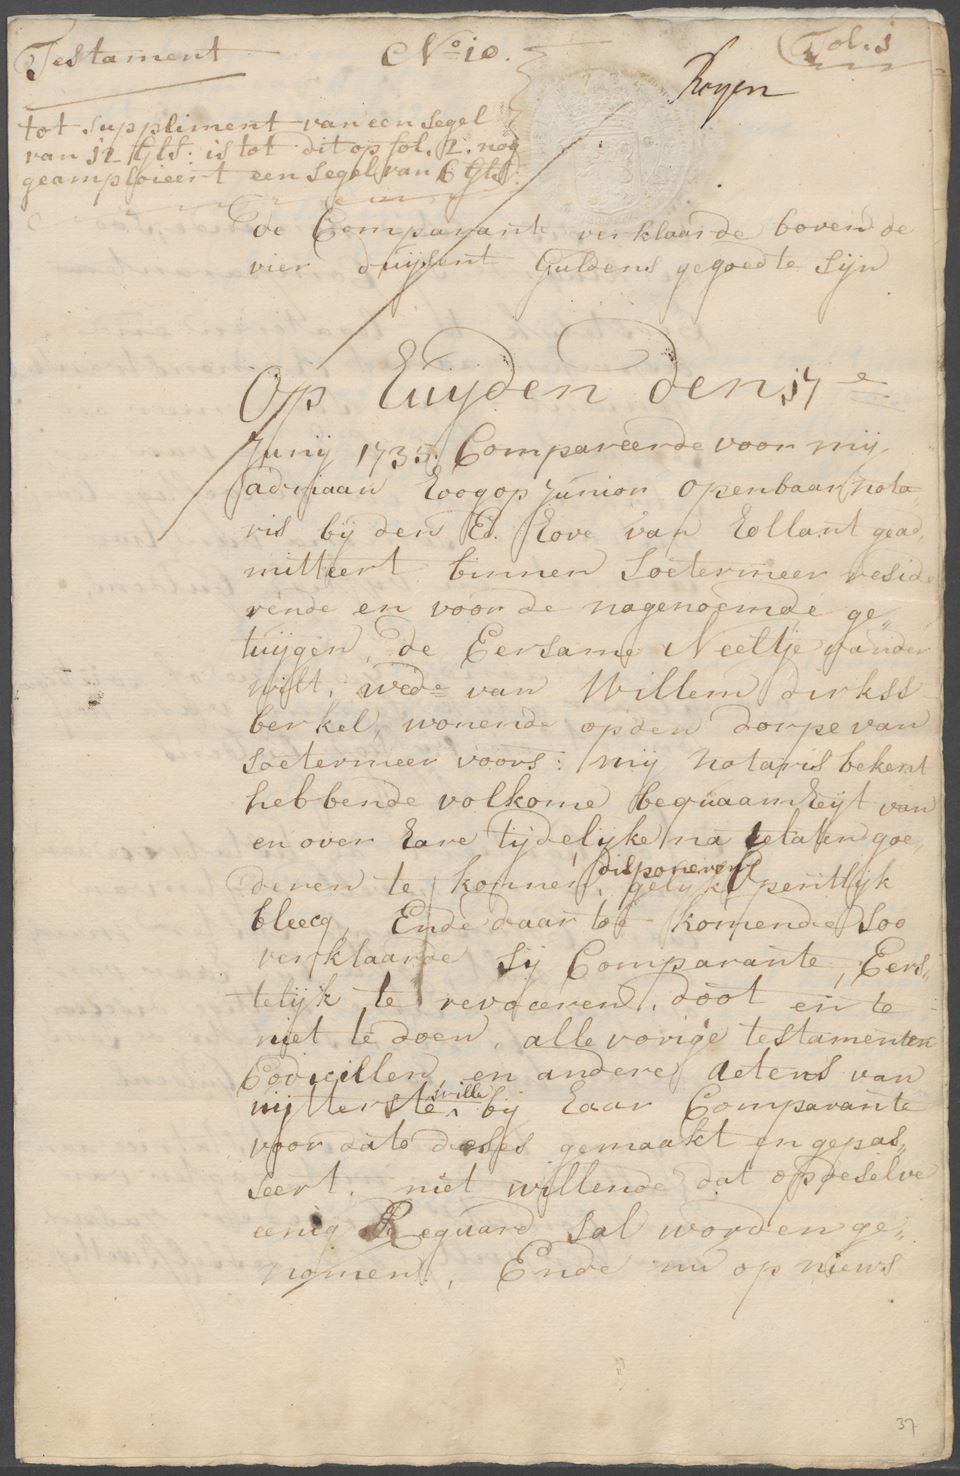 Testament
No. 10.
Fol. 1
Royen
tot suppliment van een segel
van 12 Gls: is tot dit op fol. 2. nog
geamploieert een segel van 6 Gls
de Comparante verklaarde boven de
vier duijsent Guldens gegoed te sijn
Op Huijden den 17e
Junij 1735. Compareerde voor mij
adriaan Hoogop Junior openbaar nota„
ris bij den Ed. Hove van Hollant gead„
mitteert binnen Soetermeer reside
rende en voor de nagenoemde ge„
tuijgen, de Eersame Neeltje vander
wilt, wede van Willem dirkss
berkel, wonende op den dorpe van
Soetermeer voors: mij Notaris bekent
hebbende volkome bequaamheijt van
en over hare tijdelijke na te laten goe„
deren te konnen disponeren, gelijk opentlijk
bleecq, Ende daar toe komende soo
verklaarde sij Comparante, Eers„
telijk te revoceren, doot en te
niet te doen, alle vorige testamenten
Codicillen en andere actens van
uijtterste wille bij haar Comparante
voor date deses gemaakt en gepas„
seert, niet willende dat op deselve
eenig Reguard sal worden ge„
nomen, Ende nu op nieuws
37